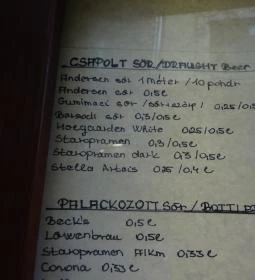 CSAPOLT SÖR/DRAUGHT Beer
Andersen sör 1 méter / 10 pohár
Andersen sör 0,5l
Gumimaci sör / 0,25/0,5
Borsodi sör 0,3/0,5l
Hoegaarden White 0,25/0,5l
Staropramen 0,3/0,5l
Staropramen dark 0,3/0,5l
Stella Artois 0,25/0,4l
PALACKOZOTT SÖR/BOTTLED
Beck's 0,5l
Löwenbräu 0,5l
Staropramen 0,33l
Corona 0,33l